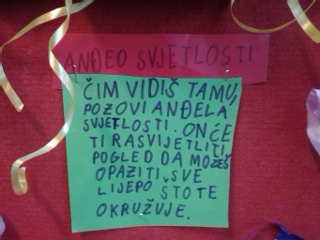 ANĐEO SVJETLOSTI
ČIM VIDIŠ TAMU,
POZOVI ANĐELA
SVJETLOSTI. ON ĆE
TI RASVIJETLITI
POGLED DA MOŽEŠ
OPAZITI SVE
LIJEPO ŠTO TE
OKRUŽUJE.